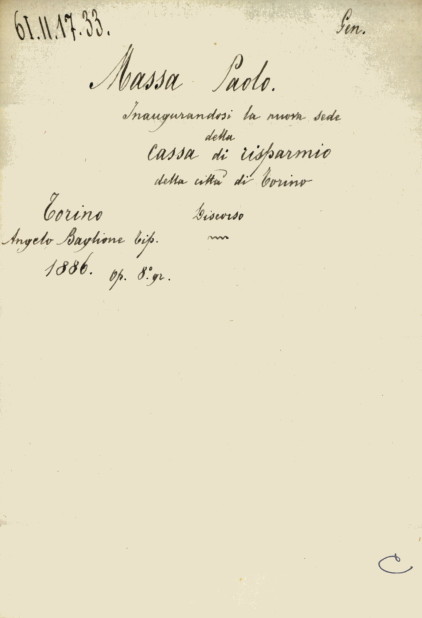 61.II.17.33. Gen.
Massa Paolo.
Inaugurandosi la nuova sede
della
Cassa di risparmio
della città di Torino
Torino Discorso
Angelo Baglione Tip.
1886. op. 8º. gr.
C